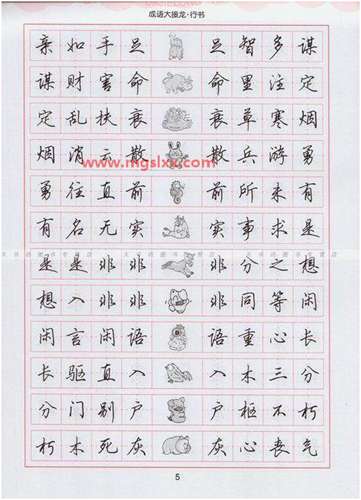 成语大接龙·行书
亲如手足 足智多谋
谋财害命 命里注定
定乱扶衰 衰草寒烟
烟消云散 散兵游勇
www.mgslxx.com
勇往直前 前所未有
有名无实 实事求是
是是非非 非分之想
想入非非 非同等闲
闲言闲语 语重心长
长驱直入 入木三分
分门别户 户枢不朽
朽木死灰 灰心丧气
5